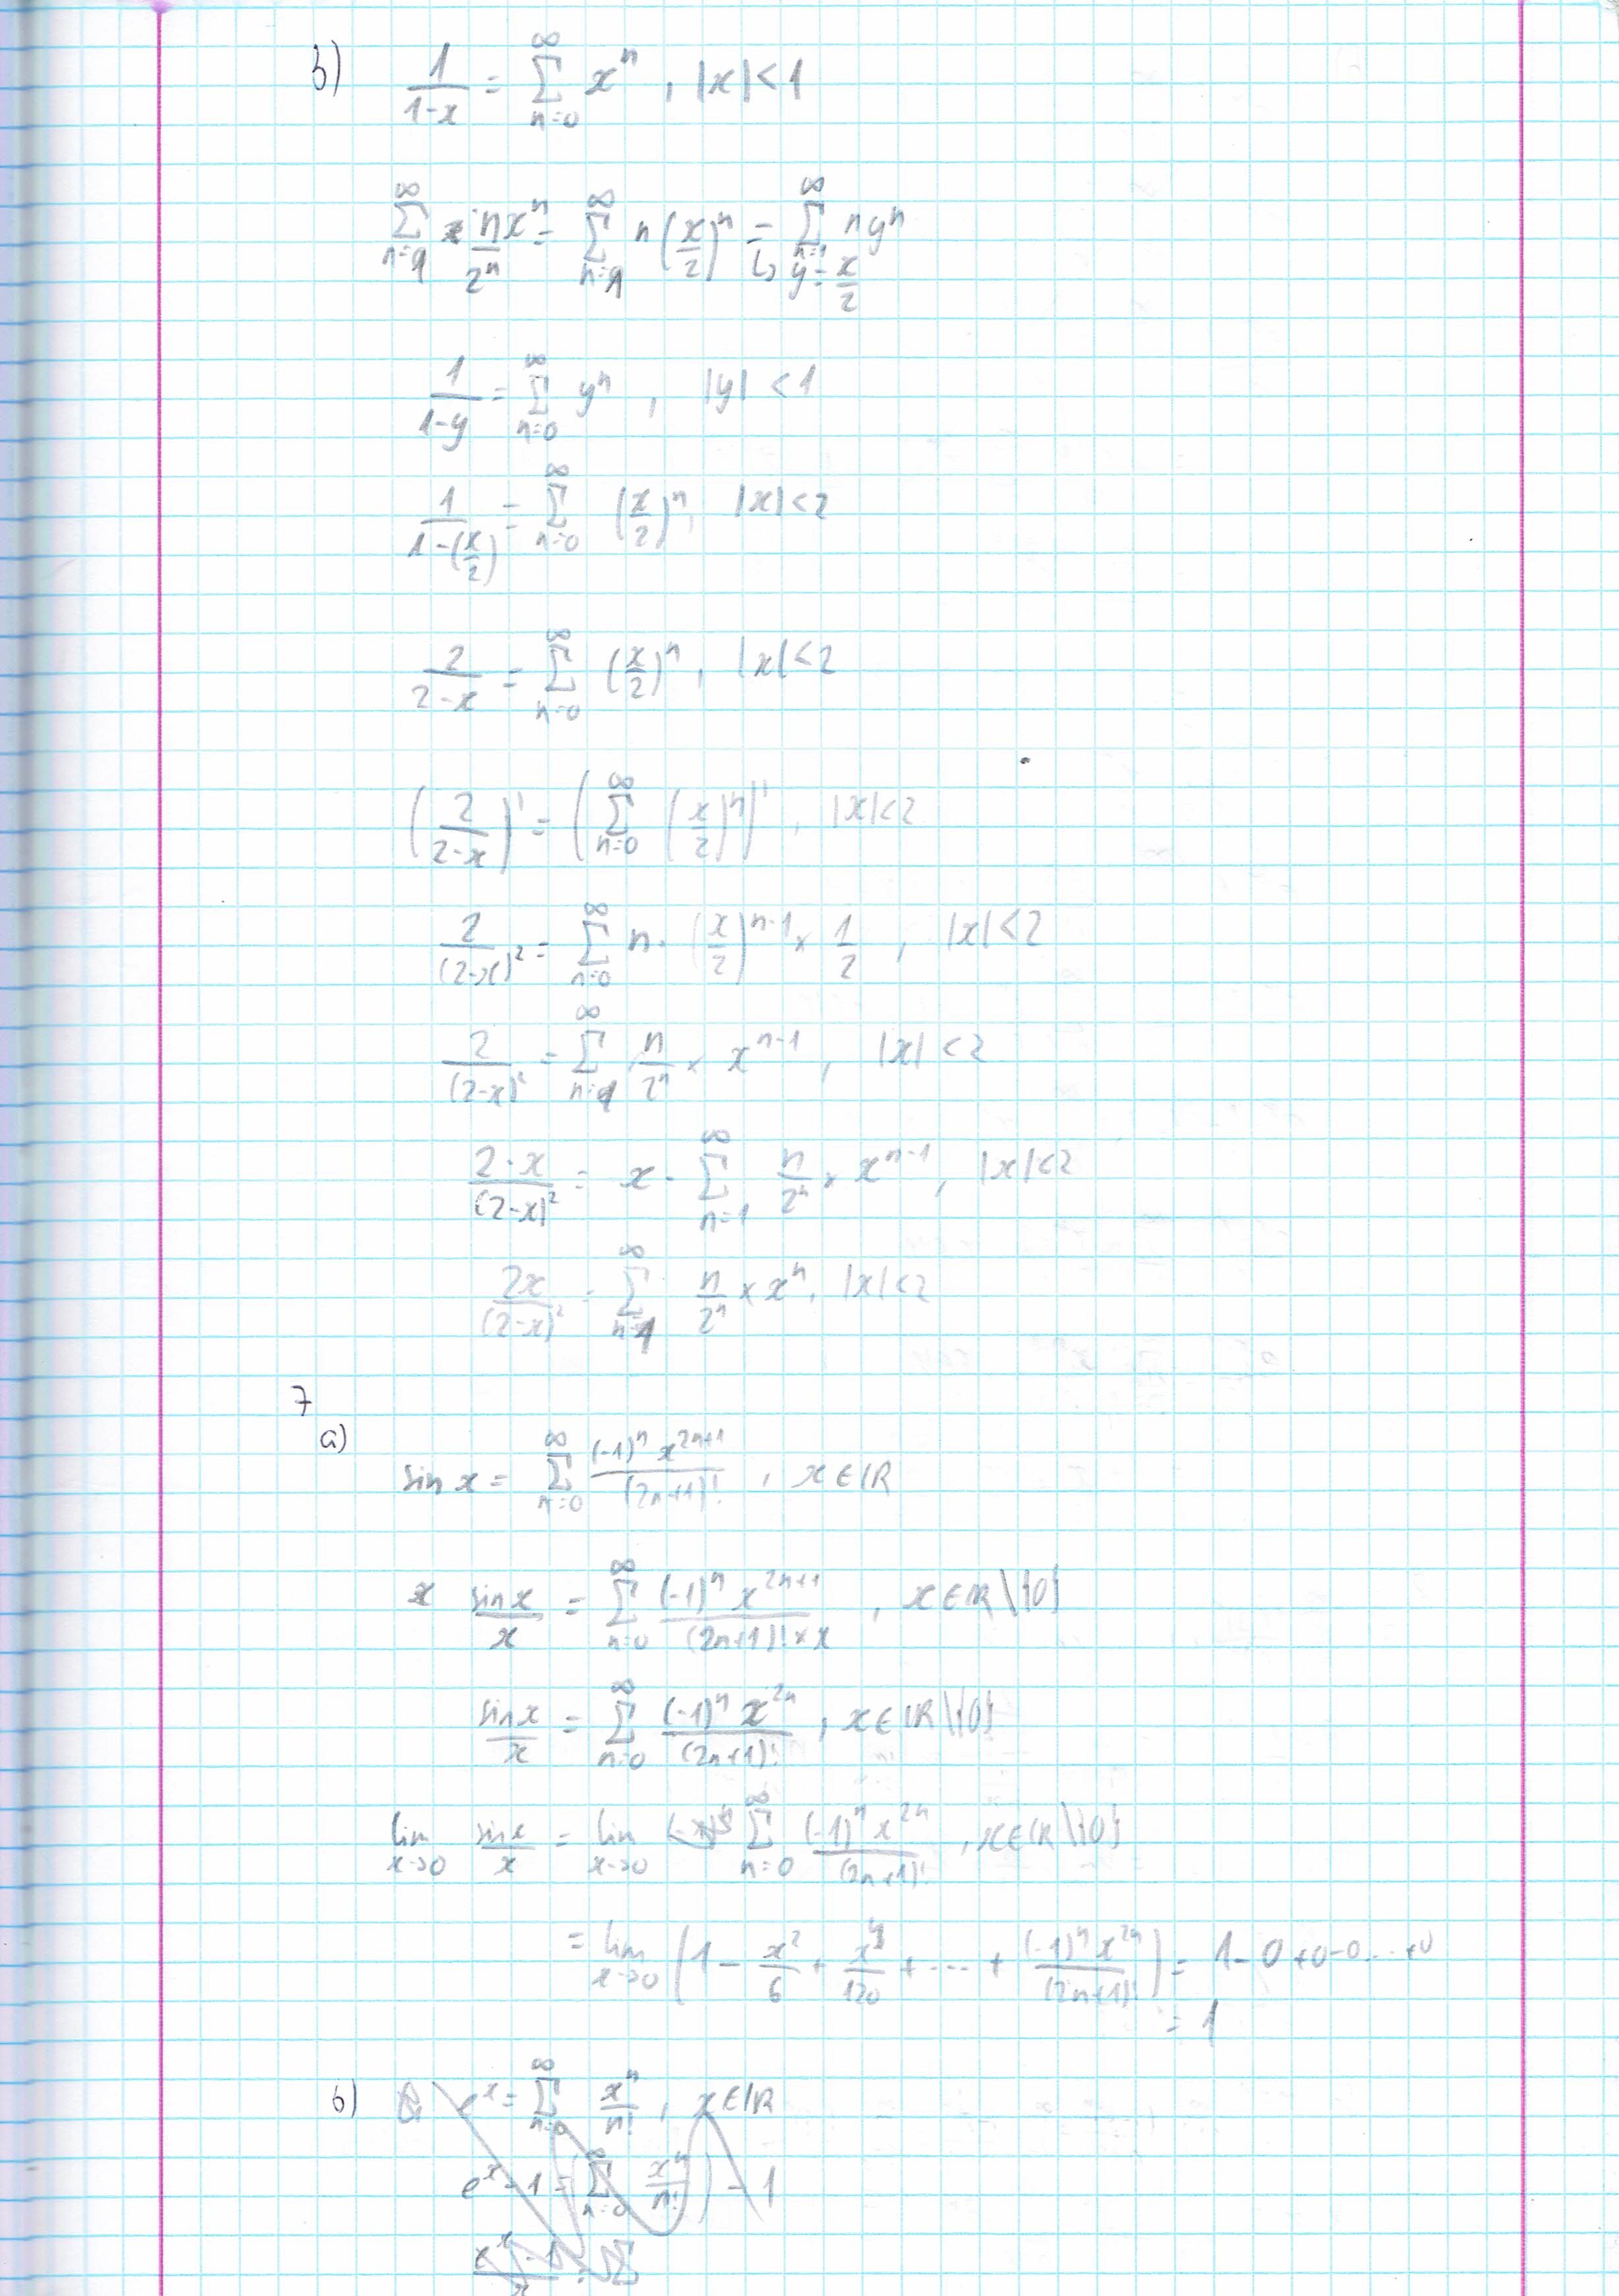 b) 1/(1-x) = ∑_{n=0}^{∞} x^n , |x|<1
∑_{n=1}^{∞} n/2^n x^n = ∑_{n=1}^{∞} n (x/2)^n = ∑_{n=1}^{∞} n y^n
↳ y = x/2
1/(1-y) = ∑_{n=0}^{∞} y^n , |y| < 1
1/(1-(x/2)) = ∑_{n=0}^{∞} (x/2)^n, |x|<2
2/(2-x) = ∑_{n=0}^{∞} (x/2)^n , |x|<2
(2/(2-x))' = (∑_{n=0}^{∞} (x/2)^n)' , |x|<2
2/(2-x)^2 = ∑_{n=0}^{∞} n · (x/2)^{n-1} × 1/2 , |x|<2
2/(2-x)^2 = ∑_{n=1}^{∞} n/2^n × x^{n-1} , |x| < 2
2·x/(2-x)^2 = x · ∑_{n=1}^{∞} n/2^n × x^{n-1} , |x|<2
2x/(2-x)^2 = ∑_{n=1}^{∞} n/2^n × x^n , |x|<2
7
a)
sin x = ∑_{n=0}^{∞} (-1)^n x^{2n+1}/(2n+1)! , x∈ℝ
sin x/x = ∑_{n=0}^{∞} (-1)^n x^{2n+1}/((2n+1)! × x) , x∈ℝ\{0}
sin x/x = ∑_{n=0}^{∞} (-1)^n x^{2n}/(2n+1)! , x∈ℝ\{0}
lim_{x→0} sin x/x = lim_{x→0} ∑_{n=0}^{∞} (-1)^n x^{2n}/(2n+1)! , x∈ℝ\{0}
= lim_{x→0} (1 - x^2/6 + x^4/120 + ... + (-1)^n x^{2n}/(2n+1)!) = 1-0+0-0...+0
= 1
b) e^x = ∑_{n=0}^{∞} x^n/n! , x∈ℝ
e^x - 1 = (∑_{n=0}^{∞} x^n/n!) - 1
(e^x - 1)/x = ∑